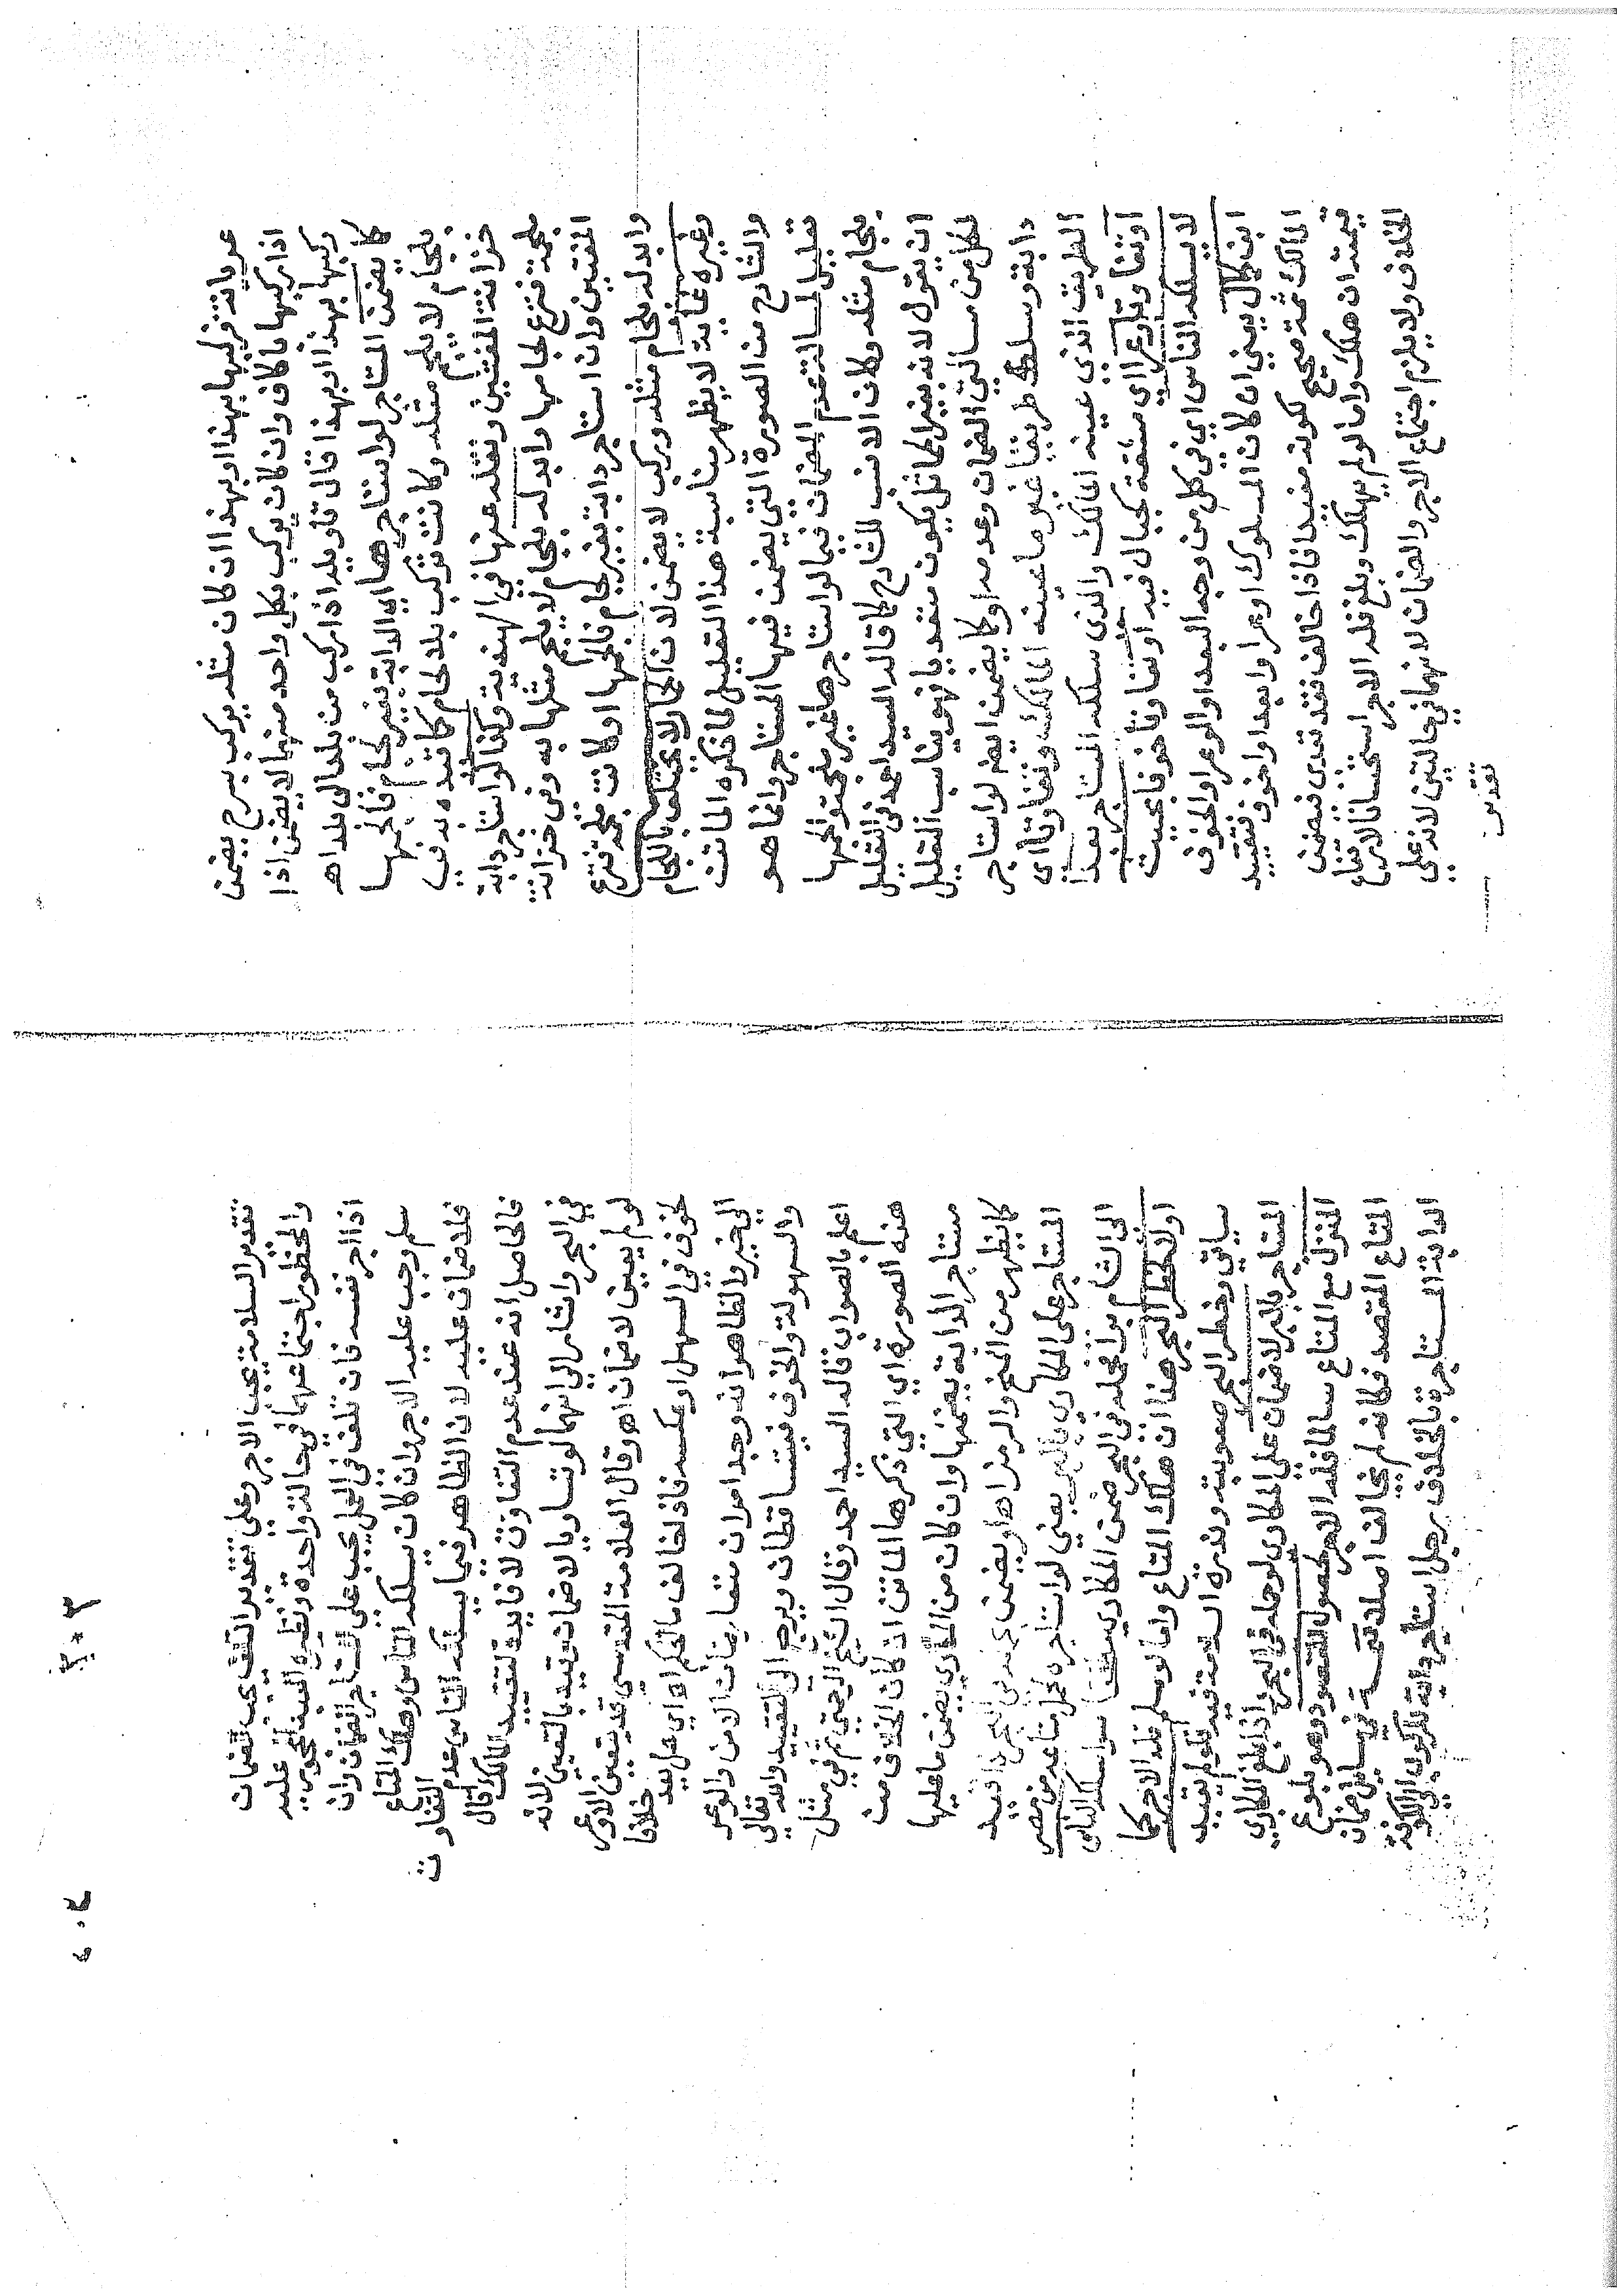 عريانة فركبها بهذا او بهذا ان كان مثله يركب بسرج يضمن
اذا ركبها باكاف وان كان يركب بكل واحد منهما لا يضمن اذا
ركبها بهذا او بهذا قال تاويله اذا ركب من بلد الى بلد اهـ
كما يضمن المستاجر لو استاجرها اي الدابة بغير لجام فألجمها
بلجام لا يلجم مثله وكانت تركب بلا لجام كما قيده به في
خزانة المفتين ونقله عنها في الهندية وكذا لو استاجر دابة
بلجمة فنزع لجامها وابدله بلجام لا يلجم مثلها به وفي خزانة
المفتين وان استاجر دابة بغير لجام فألجمها او كانت ملجمة فنزع
وابدله بلجام مثله وركب لا يضمن لان الحمار لا يختلف باللجام
وغيره غاية لا يظهر مناسبة هذا التعليل لما ذكره الماتن
والشارح من الصورة التي يضمن فيها المستاجر وانما هو
تعليل لمسالة عدم الضمان فيما لو استاجرها غير ملجمة والجمها
بلجام مثله وكان الانسب للشارح كما قاله السيد احمد في التعليل
ان يقول لانه بغير المماثل يكون متعديا فهو يناسب التعليل
لكل من مسألتي الضمان وعدمه او كما يضمن ايضا لو استاجر
دابة وسلك طريقا غير ما عينه المالك وتفاوتا اي
الطريق الذي عينه المالك والذي سلكه المستاجر بعدا
او تفاوتا وعرا اي مشقة كجبال فيه او تفاوتا خوفا بحيث
لا يسلكه الناس اي في كل من وجه البعد او الوعر او الخوف
ابن كمال يعني ان كان المسلوك اوعر او ابعد او اخوف فتقييد
المالك ثمة صحيح لكونه مفيدا فاذا خالف فقد تعدى فيضمن
قيمته ان هلك واما لو لم يهلك وبلغ فله الاجر استحسانا لارتفاع
الخلاف ولا يلزم اجتماع الاجر والضمان لانهما في حالتين لانه على
تقدير
تقدير السلامة يجب الاجر وعلى تقدير التلف يجب الضمان
والمحظور اجتماعهما في حالة واحدة ونظيره العبد المحجور عليه
اذا اجر نفسه فان تلف في العمل يجب على المستاجر الضمان وان
سلم وجب عليه الاجر وان كان يسلكه الناس وهلك المتاع
فلا ضمان عليه لان الظاهر فيما يسلكه الناس عدم التفاوت
فالحاصل انه عند عدم التفاوت لا فائدة لتقييد المالك قال
في البحر واشار الى انهما لو تساويا لا ضمان وقيد بالتعيين لانه
لو لم يعين لا ضمان اهـ وقال العلامة المقدسي قد يتعين الاوعر
لخوف في السهل او عكسه فاذا خالف ما الحكم اهـ اي هل يعد خلافا
الى خير والظاهر انه وجد امران متعارضان الامن والوعر
والسهولة والخوف فيتساقطان ويرجع الى التقييد والله تعالى
اعلم بالصواب قاله السيد احمد وقال الشيخ الرحمتي ثم في مثل
هذه الصورة اي التي ذكرها الماتن اذا كان الخلاف من
مستاجر الدابة يضمنها وان كان من المكاري يضمن ما عليها
كما يظهر من المنح والرمز اهـ او يضمن في البحر اذا قيد
المستاجر على المكاري بالبر يعني لو استاجره لحمل متاعه من مصر
الى الشام برا فحمله في البحر ضمن المكاري مطلقا سواء سلكه الناس
اولا لخطر البحر هذا ان هلك المتاع واما لو سلم فله الاجر كما
سياتي وخطر البحر صعوبته وندرة السلامة فيه فلو لم يقيد
المستاجر بالبر لا ضمان على المكاري لو حمله في البحر اذا بلغ المكاري
المنزل مع المتاع سالما فله الاجر لحصول المقصود وهو بلوغ
المتاع المقصد فكانه لم يخالف اصلا تتمة في مسايل ضمان
الدابة المستاجرة بالخلاف رجل استاجر دابة للركوب الى الكوفة